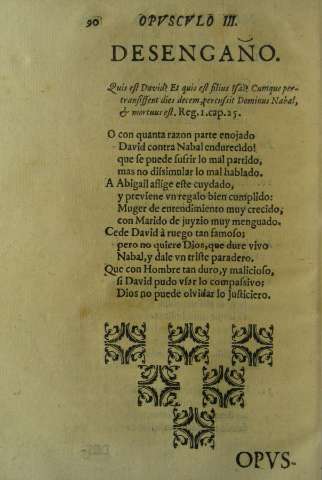 90 OPVSCVLO III.
DESENGAÑO.
Quis est David? Et quis est filius Isai? Cumque per-
transissent dies decem, percussit Dominus Nabal,
& mortuus est. Reg. 1. cap. 25.
O con quanta razon parte enojado
David contra Nabal endurecido!
que se puede sufrir lo mal partido,
mas no dissimular lo mal hablado.
A Abigail aflige este cuydado,
y previene vn regalo bien cumplido:
Muger de entendimiento muy crecido,
con Marido de juyzio muy menguado.
Cede David à ruego tan famoso;
pero no quiere Dios, que dure vivo
Nabal, y dale vn triste paradero.
Que con Hombre tan duro, y malicioso,
si David pudo vsar lo compassivo;
Dios no puede olvidar lo justiciero.
OPVS-